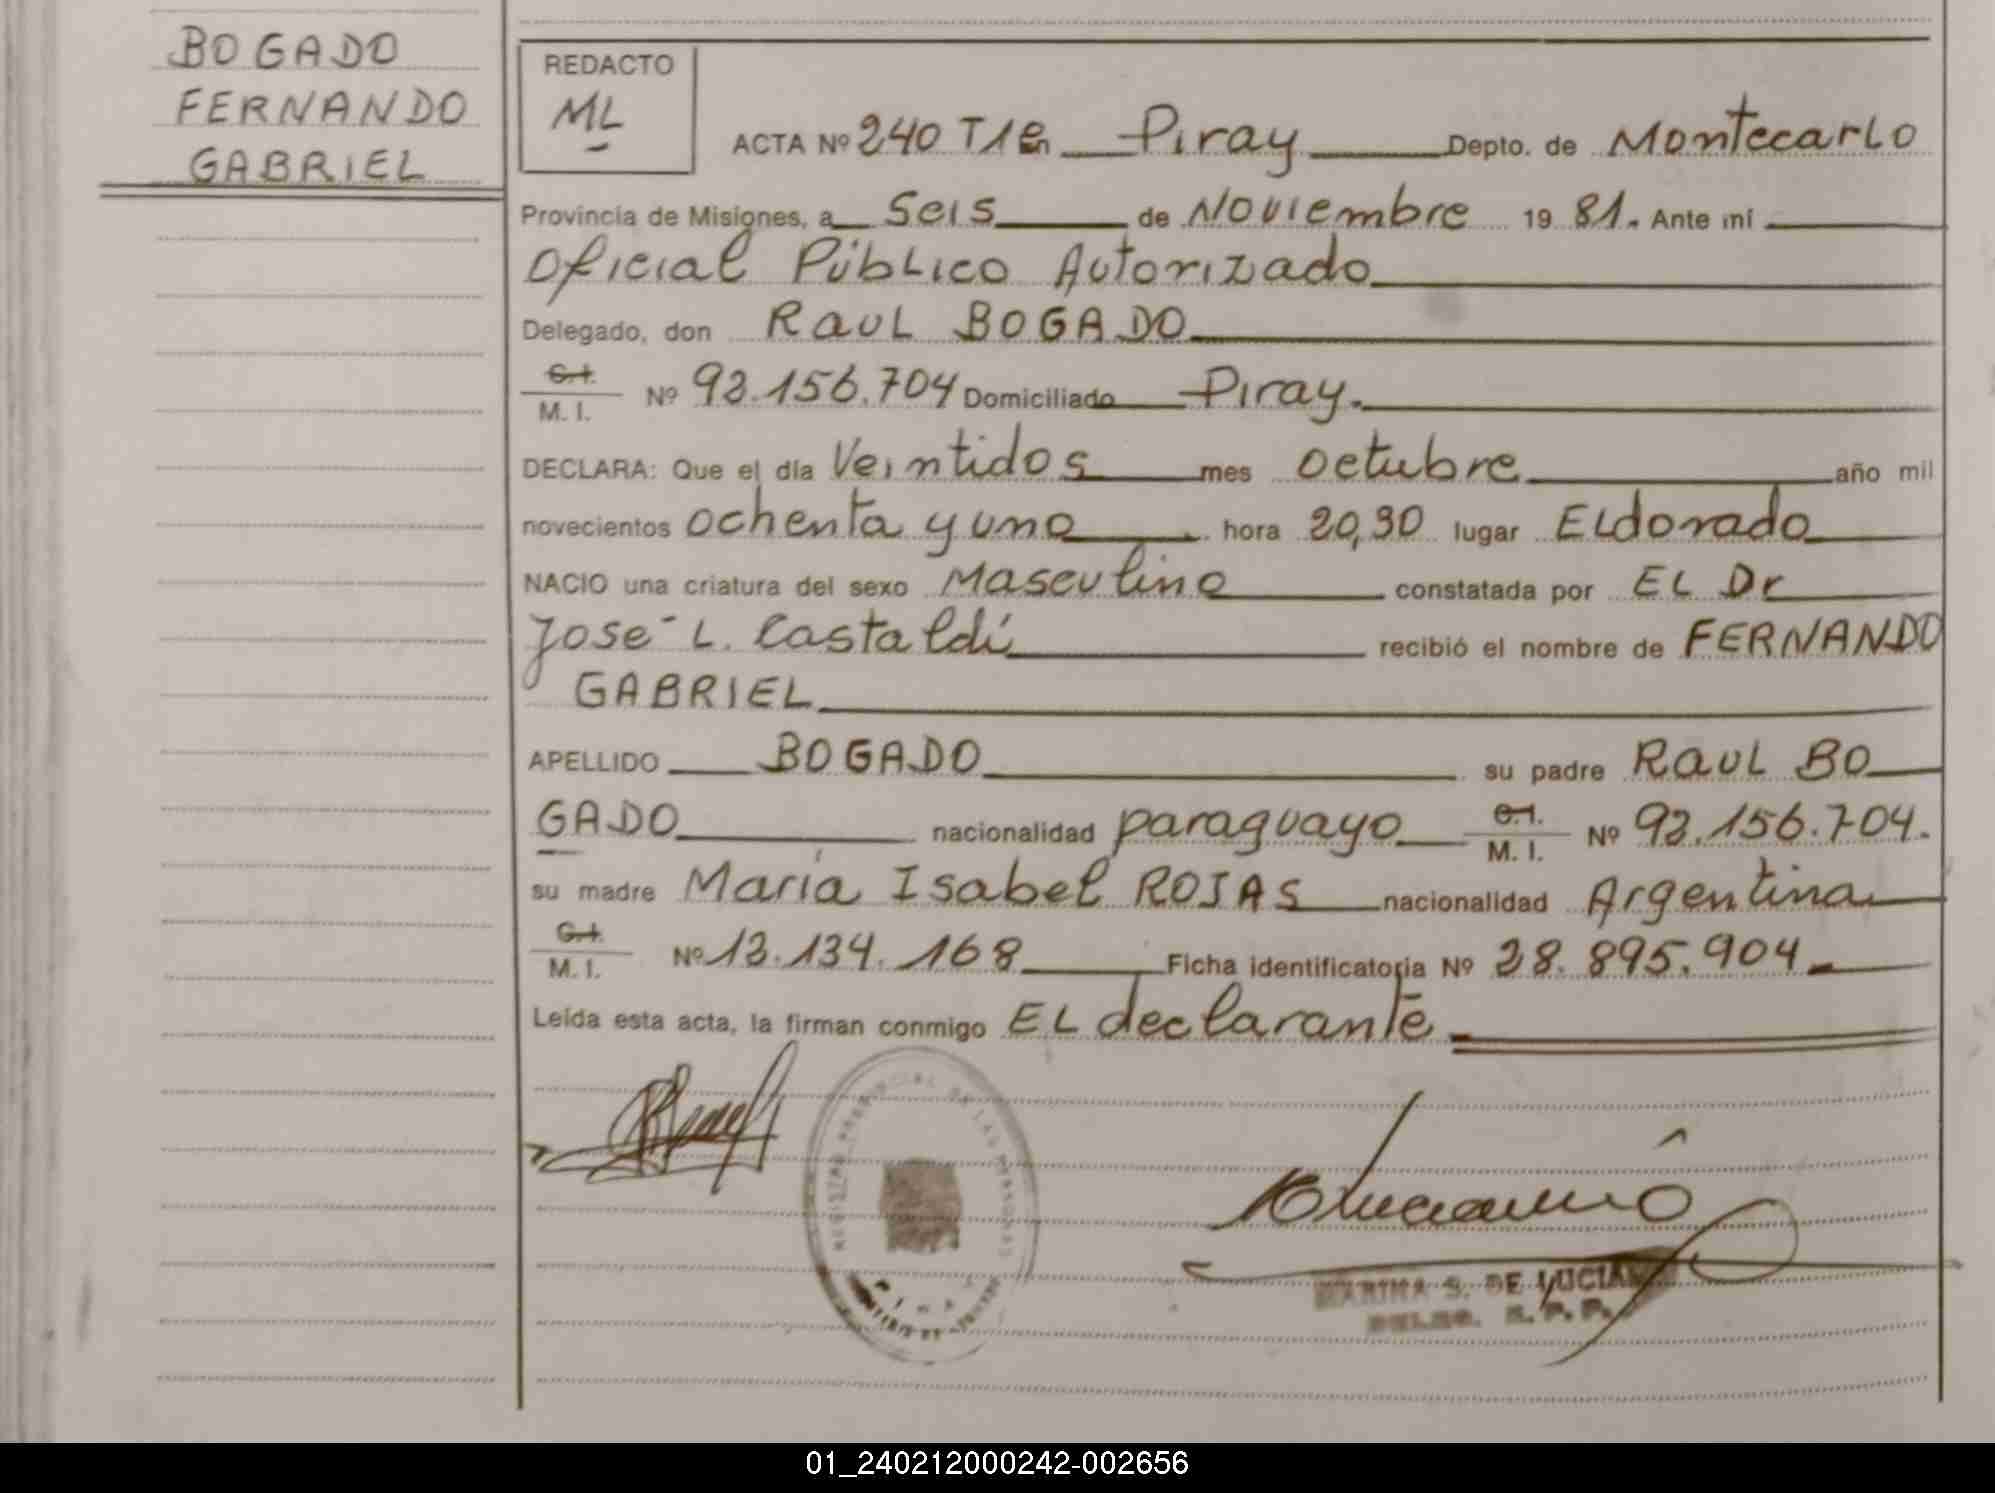 BOGADO
FERNANDO
GABRIEL
REDACTO
ML
ACTA Nº 240 T1º en Piray Depto. de Montecarlo
Provincia de Misiones, a Seis de Noviembre 19 81. Ante mí
Oficial Público Autorizado
Delegado, don Raul BOGADO
C.I. M.I. Nº 92.156.704 Domiciliado Piray.
DECLARA: Que el día Veintidos mes octubre año mil
novecientos ochenta y uno hora 20,30 lugar ELdorado
NACIO una criatura del sexo Masculino constatada por EL Dr
José L. Castaldí recibió el nombre de FERNANDO
GABRIEL
APELLIDO BOGADO su padre Raul BO
GADO nacionalidad paraguayo C.I. M.I. Nº 92.156.704.
su madre María Isabel ROJAS nacionalidad Argentina
C.I. M.I. Nº 12.134.168 Ficha identificatoria Nº 28.895.904
Leída esta acta, la firman conmigo EL declarante
REGISTRO PROVINCIAL DE LAS PERSONAS
PIRAY
MARINA S. DE LUCIANO
DELEG. R. P. P.
01_240212000242-002656